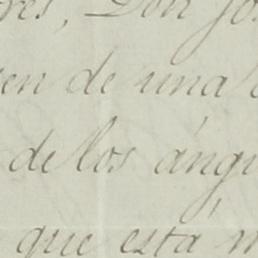 res, Don Jo
en de una
de los ángu
que esta m